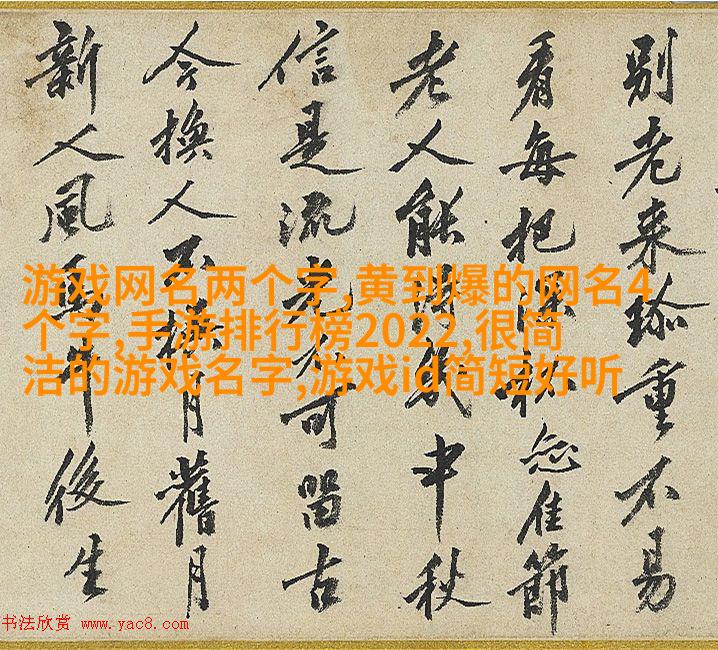 别老来珎重不易
看每把深杯佳節
老人能消幾中秋
信是流光不可留古
今換人不換月舊月
新人風馬牛後生
游戏网名两个字,黄到爆的网名4
个字,手游排行榜2022,很简
洁的游戏名字,游戏id简短好听
书法欣赏 www.yac8.com